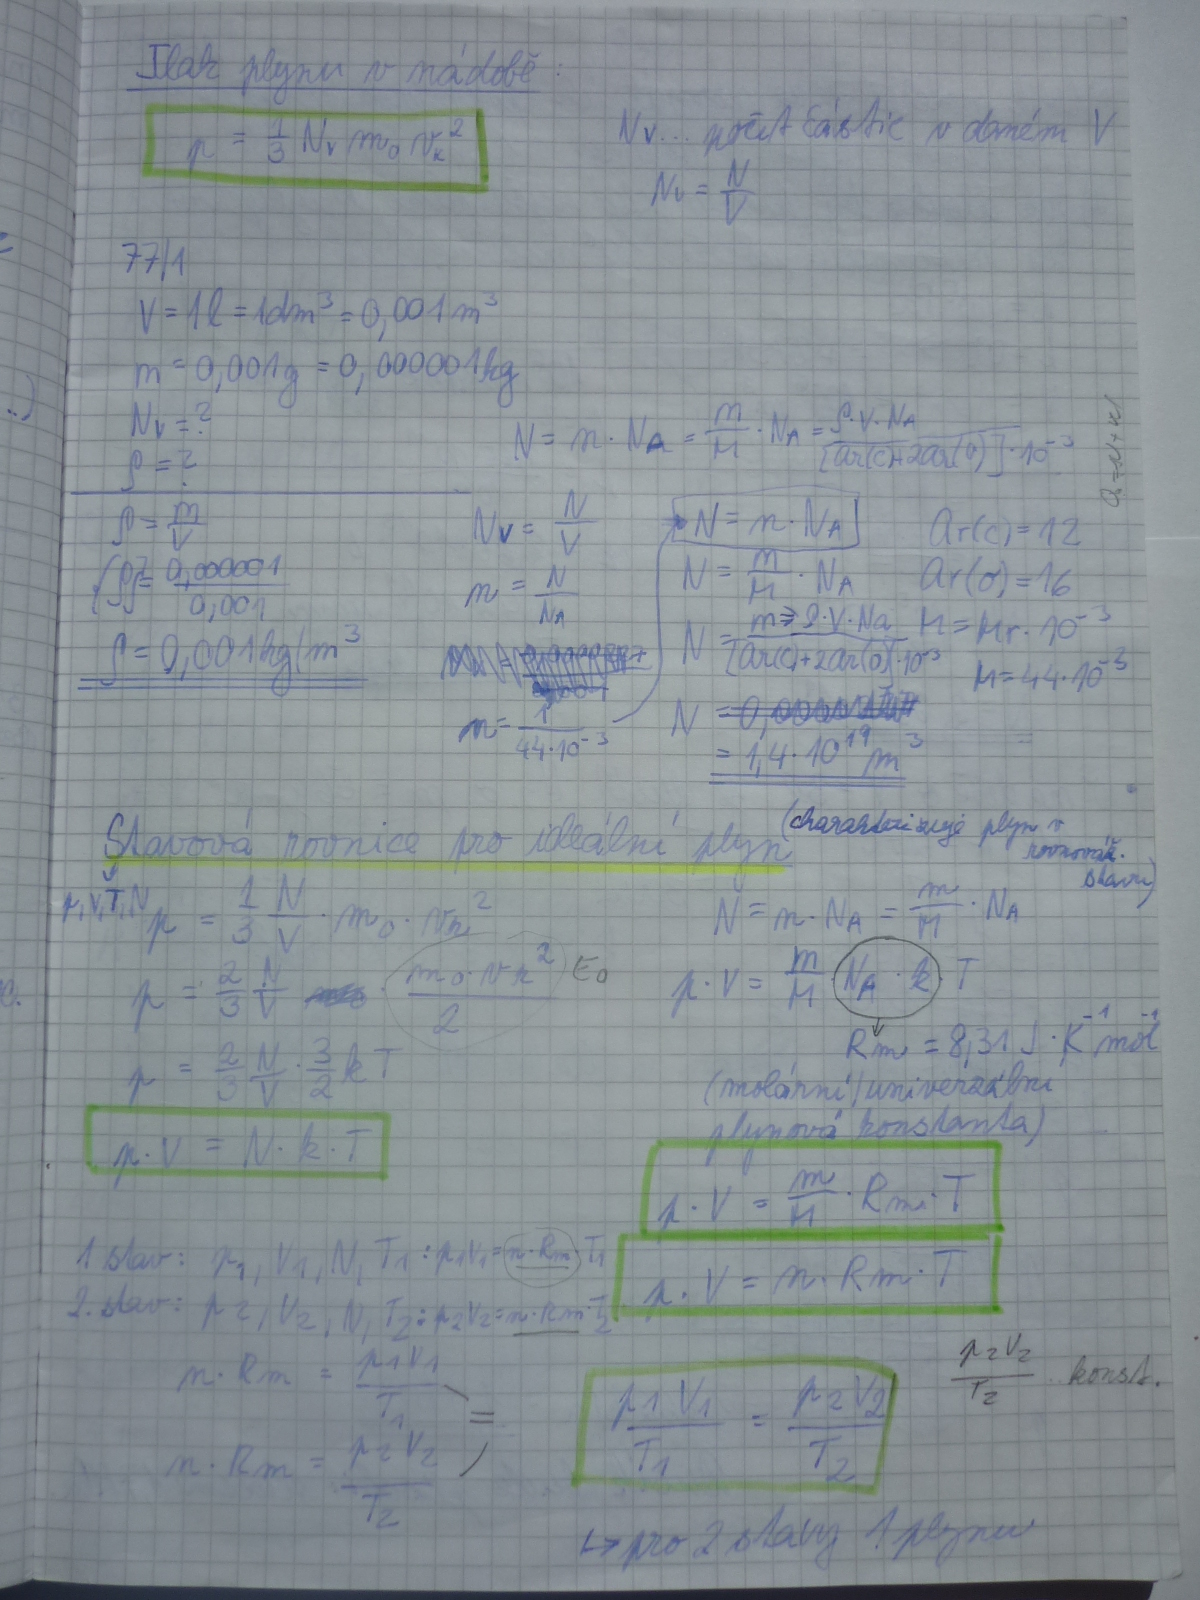 Tlak plynu v nádobě:
p = 1/3 Nv m₀ vₖ²
Nv... počet částic v daném V
Nv = N/V
77/1
V = 1l = 1dm³ = 0,001 m³
m = 0,001g = 0,000001kg
Nv = ?
ρ = ?
N = n · NA = m/M · NA = ρ·V·NA/[Ar(C)+2Ar(O)]·10⁻³
ρ = m/V
ρ = 0,000001/0,001
ρ = 0,001kg/m³
Nv = N/V
n = N/NA
n = 1/44·10⁻³
N = n · NA
N = m/M · NA
N = m⇒ρ·V·Na/[Ar(C)+2Ar(O)]·10⁻³
N =
= 1,4·10¹⁹ m³
Ar(C) = 12
Ar(O) = 16
M = Mr·10⁻³
M = 44·10⁻³
Stavová rovnice pro ideální plyn
(charakterizuje plyn v
rovnováž.
stavu)
p,V,T,N
p = 1/3 N/V · m₀ · vₖ²
p = 2/3 N/V · m₀·vₖ²/2 E₀
p = 2/3 N/V · 3/2 kT
p·V = N·k·T
N = n·NA = m/M · NA
p·V = m/M NA·k T
Rm = 8,31 J·K⁻¹mol⁻¹
(molární/univerzální
plynová konstanta)
p·V = m/M · Rm · T
p·V = n·Rm·T
1 stav: p₁, V₁, N, T₁ : p₁V₁ = n·Rm·T₁
2. stav: p₂, V₂, N, T₂ : p₂V₂ = n·Rm·T₂
n·Rm = p₁V₁/T₁
=
n·Rm = p₂V₂/T₂
p₁V₁/T₁ = p₂V₂/T₂
p₂V₂/T₂ .. konst.
↳ pro 2 stavy 1 plynu